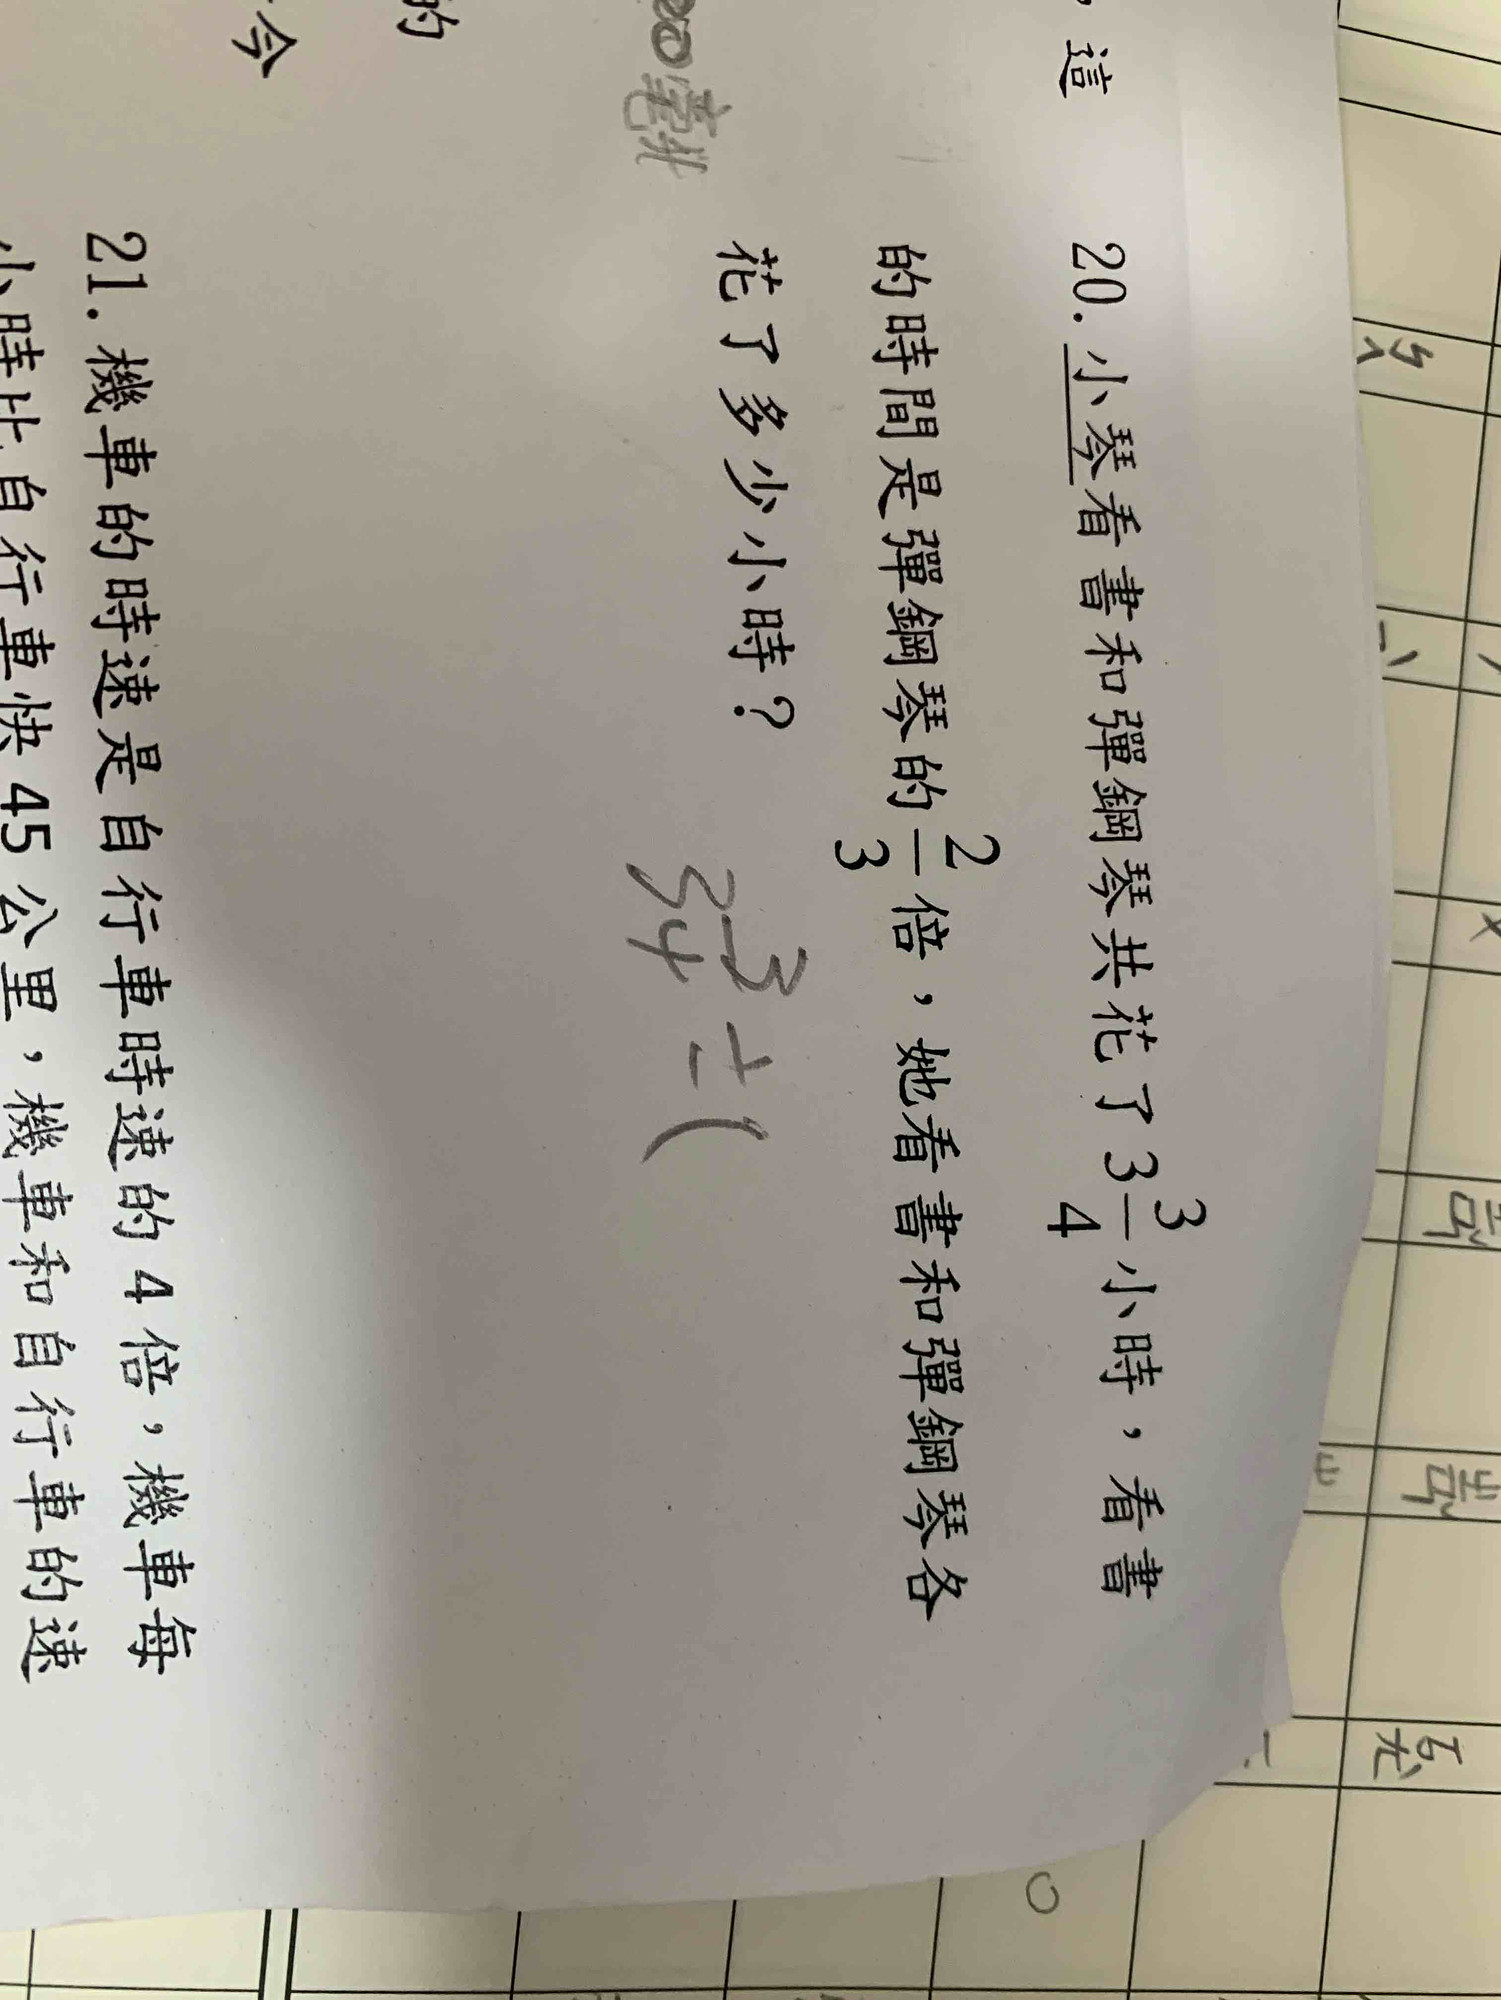 ，這
20.小琴看書和彈鋼琴共花了3 3/4小時，看書
的時間是彈鋼琴的2/3倍，她看書和彈鋼琴各
花了多少小時？
3 3/4 ÷ (
毫升
的
今
21.機車的時速是自行車時速的4倍，機車每
小時比自行車快45公里，機車和自行車的速